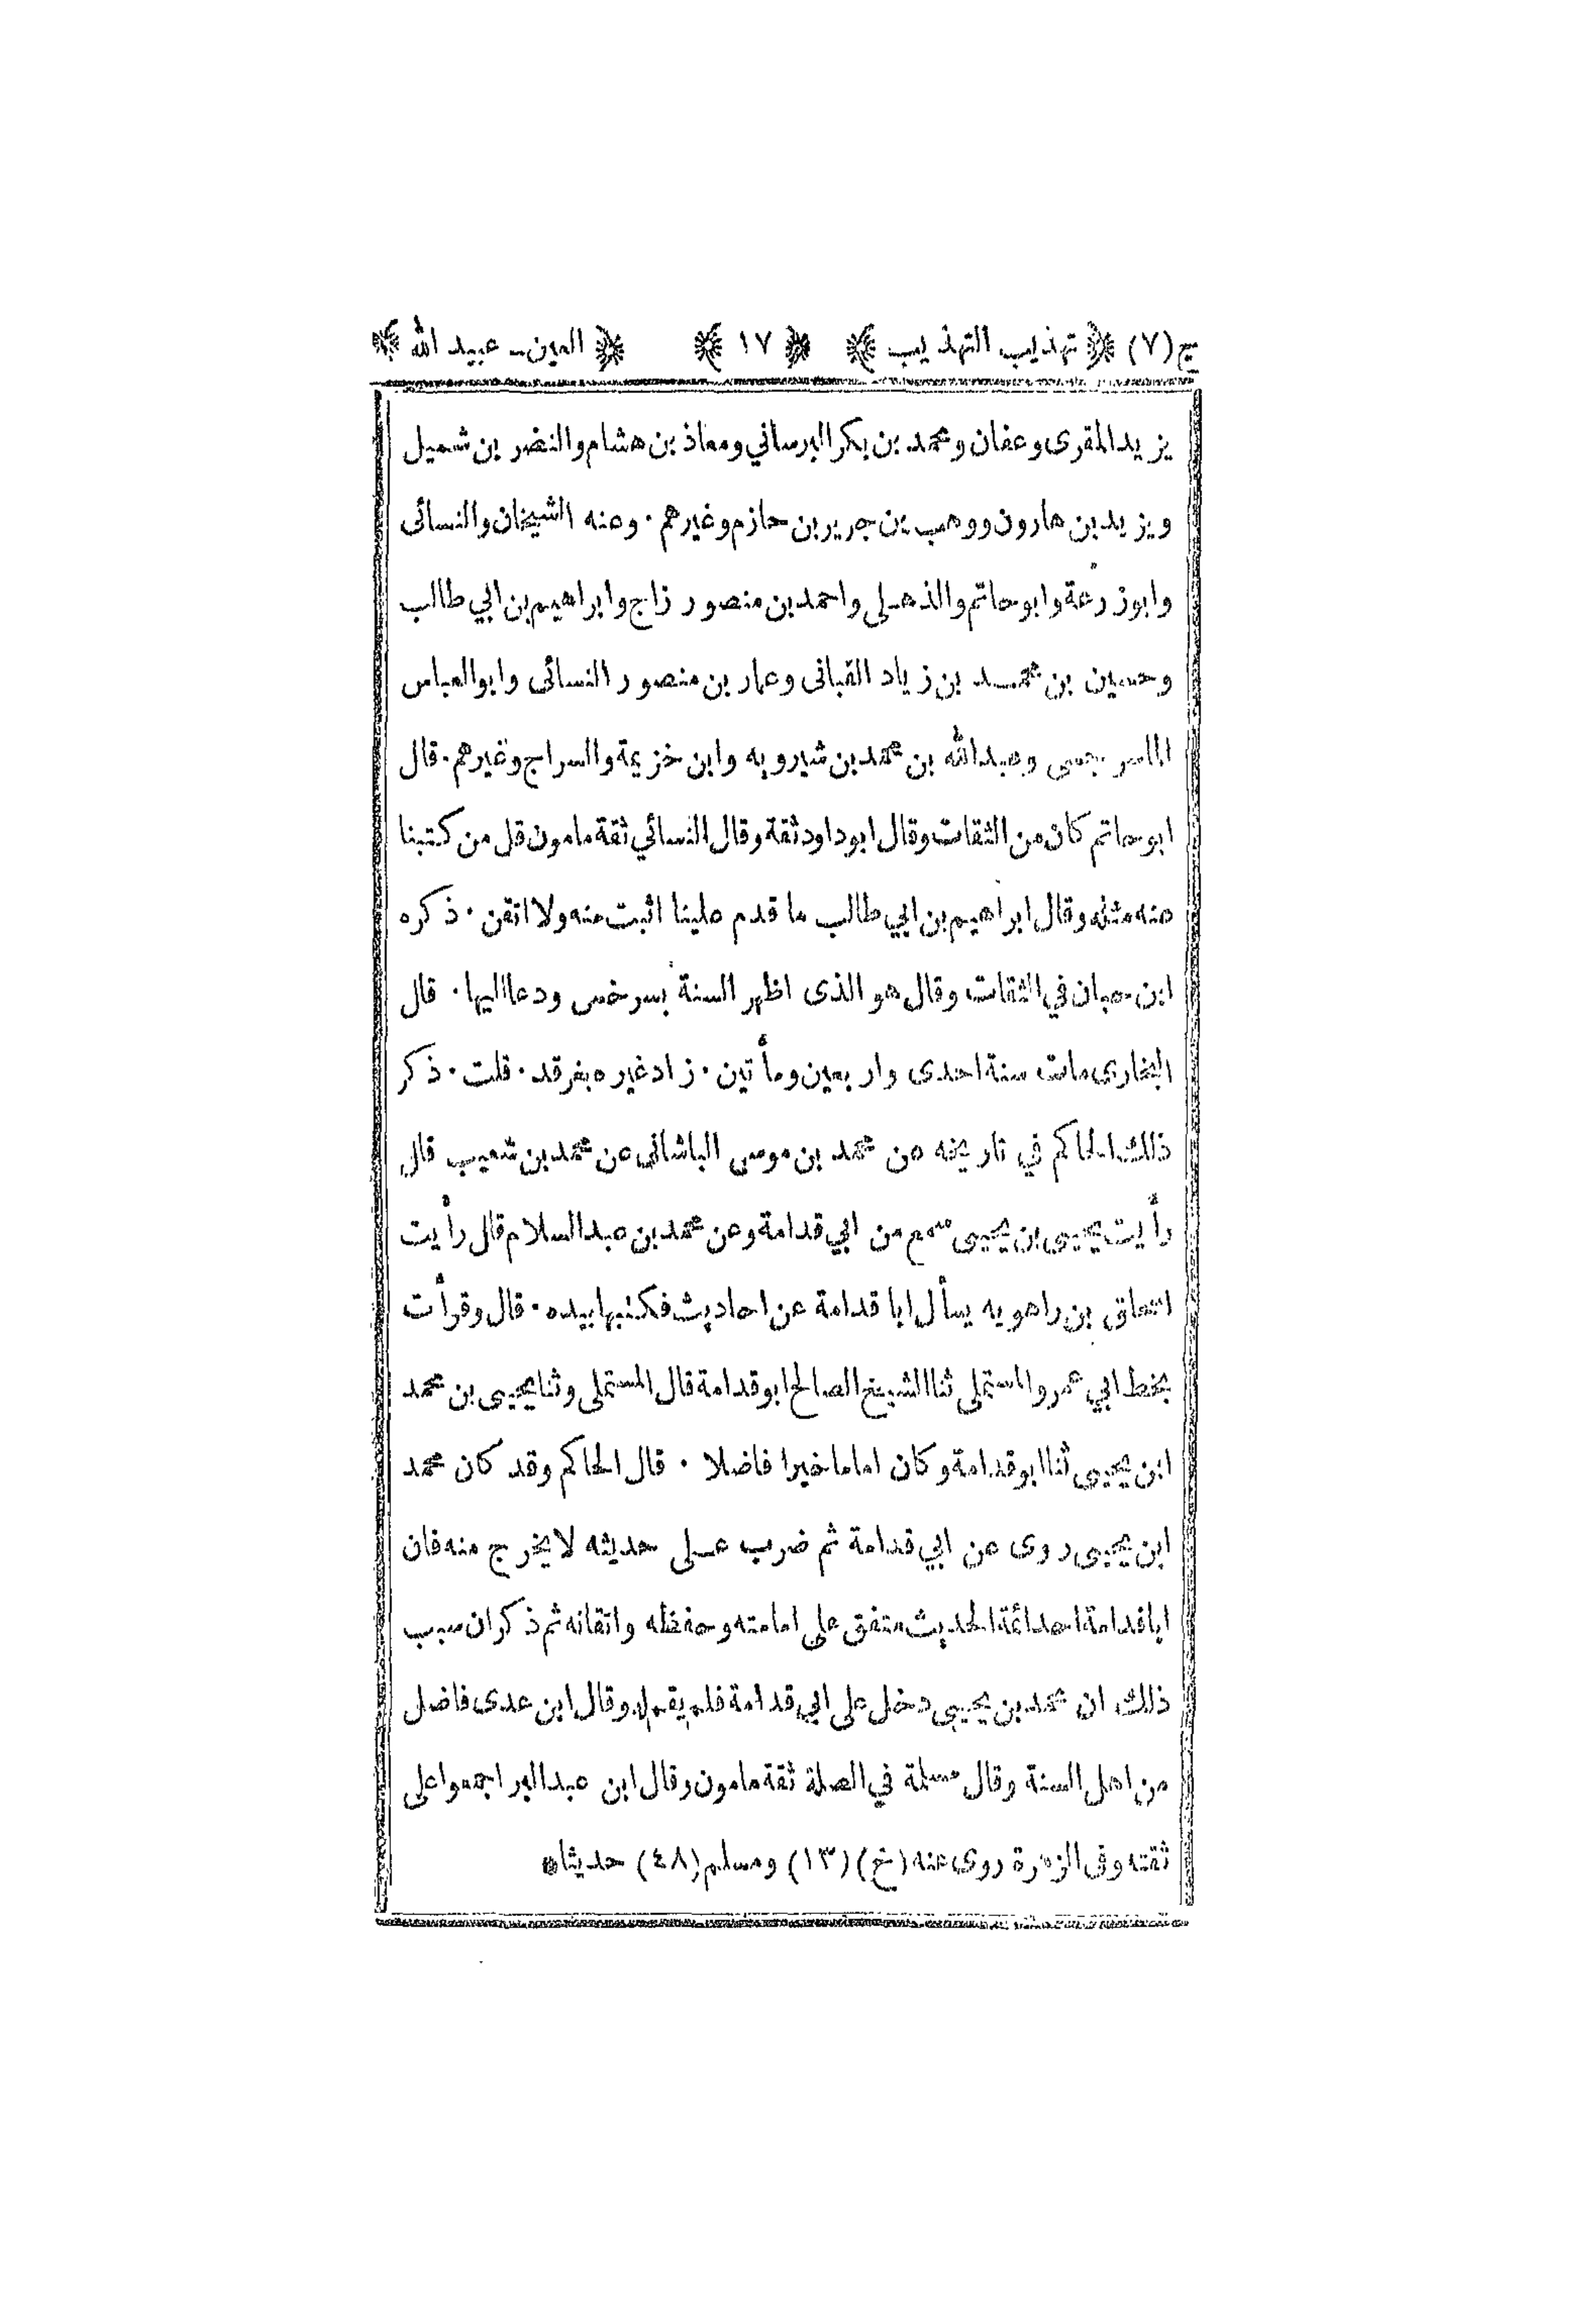 ج(٧) ﴿ تهذيب التهذيب ﴾ ﴿ ١٧ ﴾ ﴿ العين - عبيد الله ﴾
يزيد المقرى وعفان ومحمد بن بكر البرساني ومعاذ بن هشام والنضر بن شميل
ويزيد بن هارون ووهب بن جرير بن حازم وغيرهم · وعنه الشيخان والنسائى
وابو زرعة وابو حاتم والذهلى واحمد بن منصور زاج وابراهيم بن ابي طالب
وحسين بن محمد بن زياد القبانى وعمار بن منصور النسائى وابو العباس
الماسرجسى وعبد الله بن محمد بن شيرويه وابن خزيمة والسراج وغيرهم · قال
ابو حاتم كان من الثقات وقال ابو داود ثقة وقال النسائي ثقة مامون قل من كتبنا
عنه مثله وقال ابراهيم بن ابي طالب ما قدم علينا اثبت منه ولا اتقن · ذكره
ابن حبان في الثقات وقال هو الذى اظهر السنة بسرخس ودعا اليها · قال
البخارى مات سنة احدى واربعين ومأتين · زاد غيره بفرقد · قلت · ذكر
ذلك الحاكم في تاريخه عن محمد بن موسى الباشانى عن محمد بن شعيب قال
رأيت يحيى بن يحيى سمع من ابي قدامة وعن محمد بن عبد السلام قال رأيت
اسحاق بن راهويه يسأل ابا قدامة عن احاديث فكتبها بيده · قال وقرأت
بخط ابي عمرو المستملى ثنا الشيخ الصالح ابو قدامة قال المستملى وثنا يحيى بن محمد
ابن يحيى ثنا ابو قدامة وكان اماما خيرا فاضلا · قال الحاكم وقد كان محمد
ابن يحيى روى عن ابي قدامة ثم ضرب على حديثه لا يخرج منه فان
ابا قدامة احد ائمة الحديث متفق على امامته وحفظه واتقانه ثم ذكر ان سبب
ذلك ان محمد بن يحيى دخل على ابي قدامة فلم يقم له وقال ابن عدى فاضل
من اهل السنة وقال مسلمة في الصلة ثقة مامون وقال ابن عبد البر اجمعوا على
ثقته وفى الزهرة روى عنه (خ) (١٣) ومسلم (٤٨) حديثا *